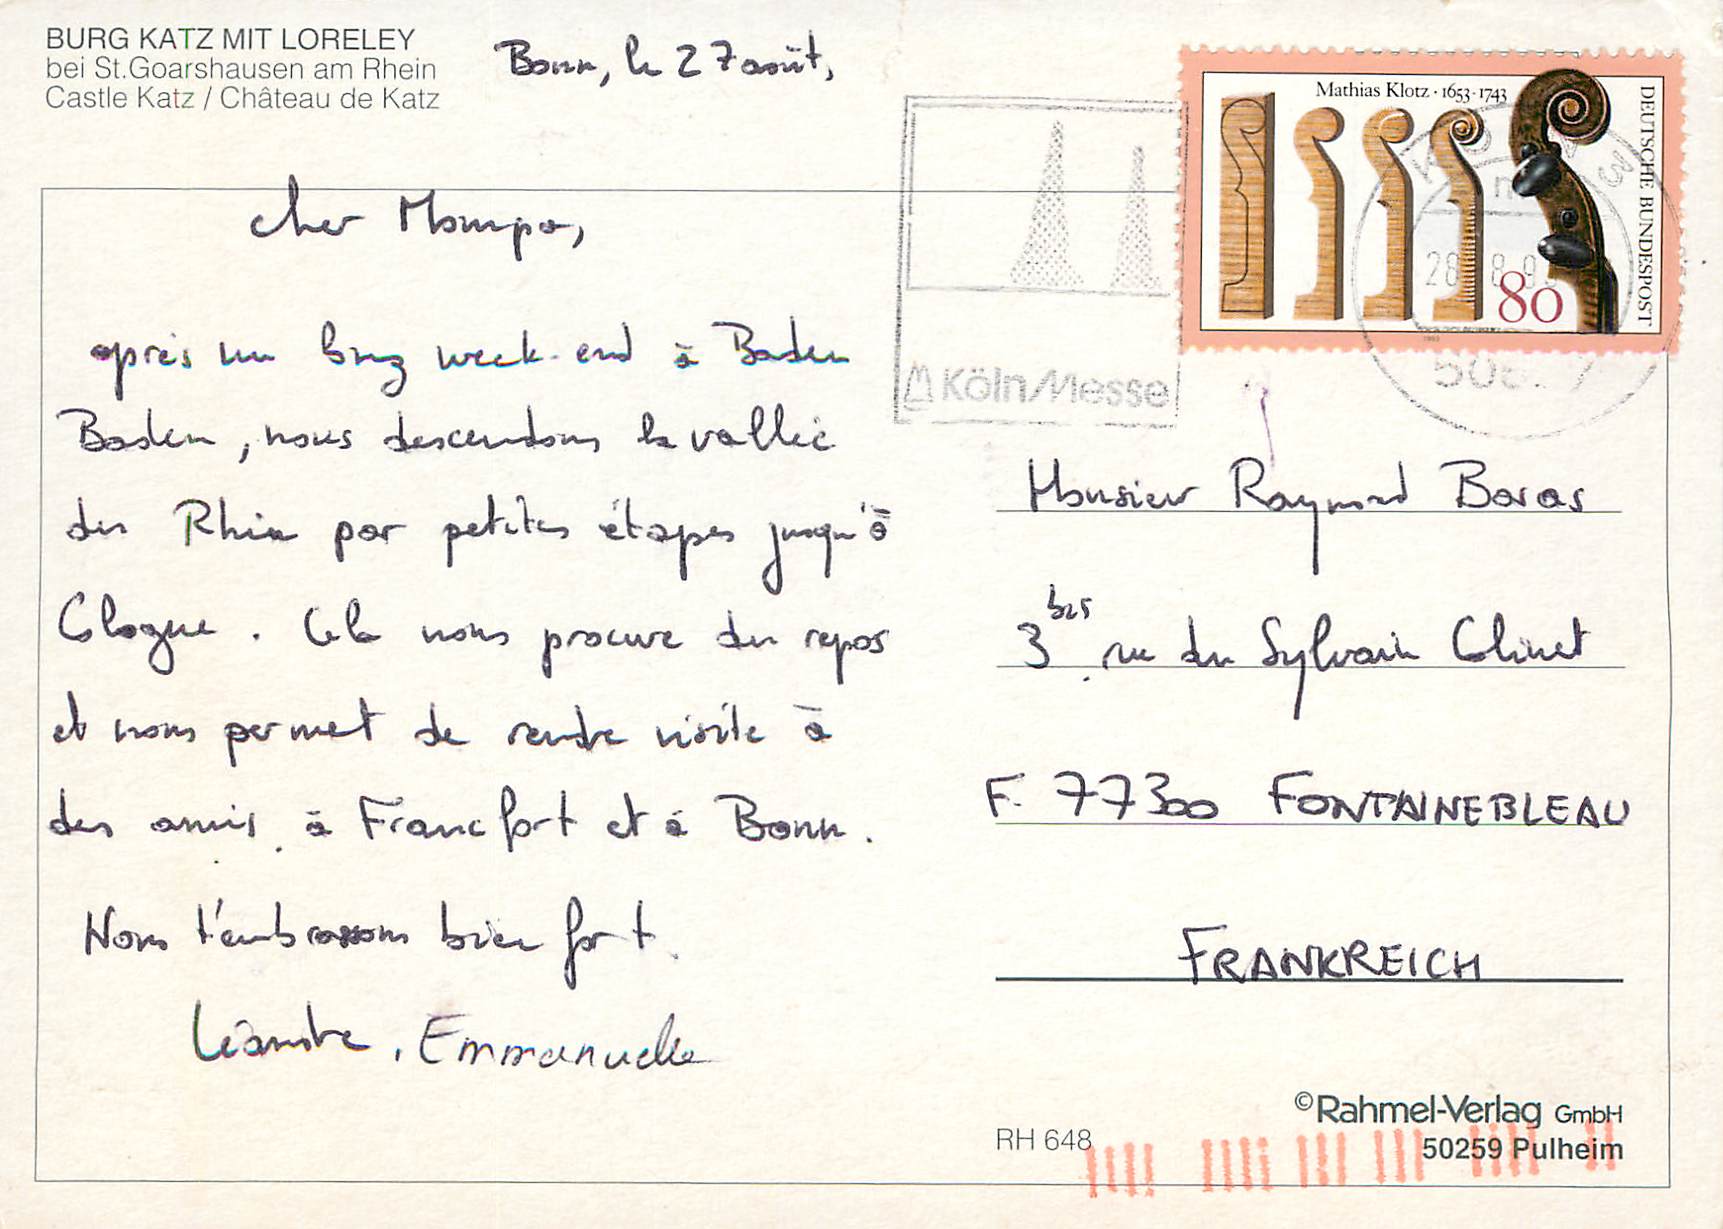 BURG KATZ MIT LORELEY
bei St.Goarshausen am Rhein
Castle Katz / Château de Katz
Bonn, le 27 août,
Cher Mompo,
après un long week-end à Baden
Baden, nous descendons la vallée
du Rhin par petites étapes jusqu'à
Cologne. Cela nous procure du repos
et nous permet de rendre visite à
des amis, à Francfort et à Bonn.
Nous t'embrassons bien fort.
Léandre, Emmanuelle
Mathias Klotz · 1653 · 1743
DEUTSCHE BUNDESPOST
80
1993
28 8 9
KölnMesse
Monsieur Raymond Baras
3 bis rue du Sylvain Colinet
F. 77300 FONTAINEBLEAU
FRANKREICH
©Rahmel-Verlag GmbH
50259 Pulheim
RH 648